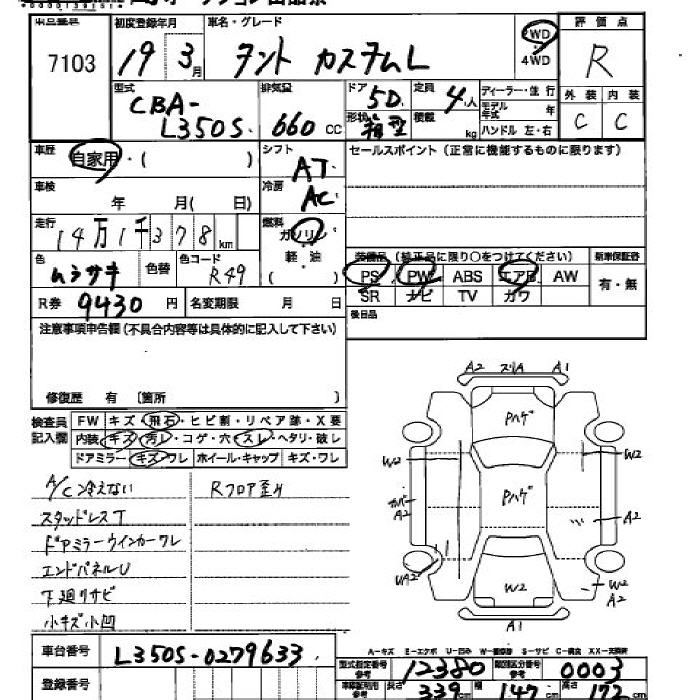 初度登録年月 車名・グレード 2WD 評価点
7103 19年3月 タント カスタムL ・ R
4WD
型式 排気量 ドア 5D 定員 4人 ディーラー・並行 外装 内装
CBA- モデル年式 年
L350S 660cc 形状 箱型 積載 kg ハンドル 左・右 C C
車歴 自家用・( ) シフト AT セールスポイント(正常に機能するものに限ります)
車検 年 月( 日) 冷房 AC
走行 14万1千378km 燃料 ガソリン
色 ムラサキ 色替 色コード R49 軽・油 ( )
装備品(純正品に限り○をつけてください) 新車保証書
PS PW ABS エアB AW 有・無
SR ナビ TV カワ
R券 9430円 名変期限 月 日 後日品
注意事項申告欄(不具合内容等は具体的に記入して下さい)
修復歴 有 〔箇所 〕
検査員記入欄 FW キズ・飛石・ヒビ割・リペア跡・X要
内装 キズ・汚レ・コゲ・穴・スレ・ヘタリ・破レ
ドアミラー キズ・ワレ ホイール・キャップ キズ・ワレ
A/C冷えない Rフロア歪み
スタッドレスT
ドアミラーウインカーワレ
エンドパネルU
下廻りサビ
小キズ小凹
A2 スリA A1
Pハゲ
W2 W2
Pハゲ
カバーA2 A2
UA2 W2 W2
A2
A1
A-キズ E-エクボ U-凹み W-補修跡 S-サビ C-腐食 XX-交換済
車台番号 L350S-0279633 型式指定番号 12380 類別区分番号 0003
登録番号 長さ 339cm 幅 147cm 高さ 172cm